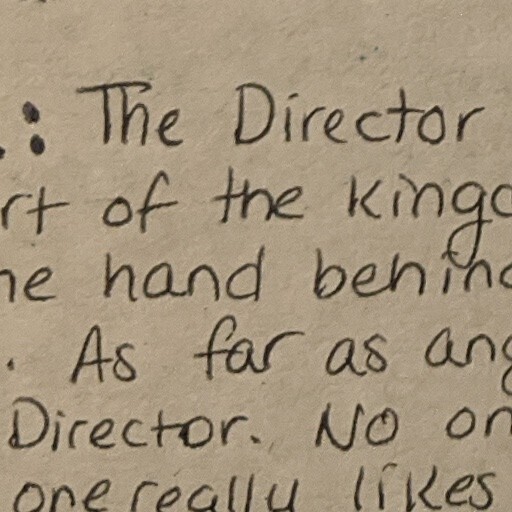 .: The Director
rt of the kingd
he hand behind
. As far as any
Director. No on
one really likes